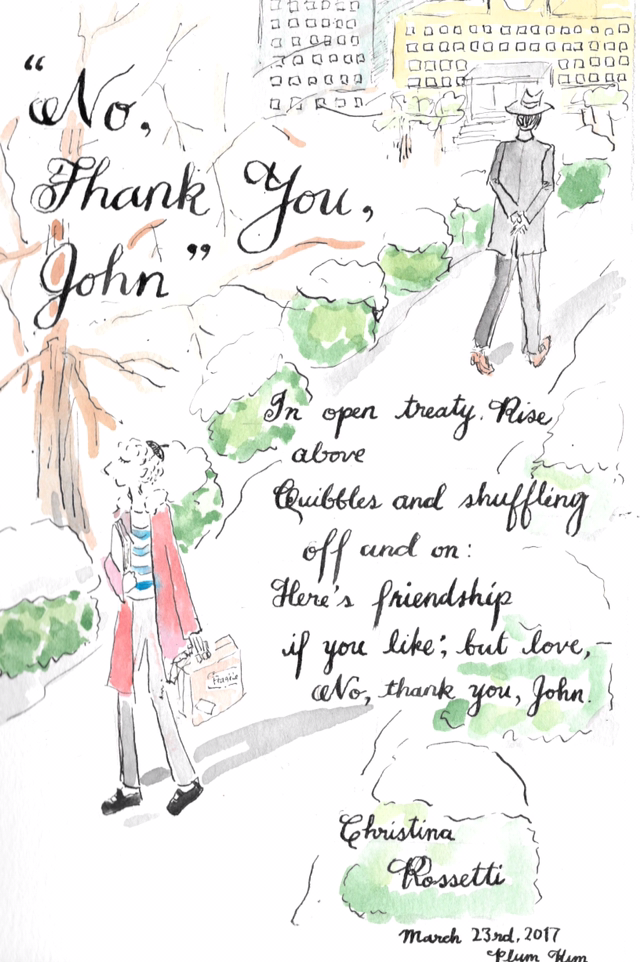 "No,
Thank You,
John"
In open treaty. Rise
above
Quibbles and shuffling
off and on:
Here's friendship
if you like; but love,-
No, thank you, John.
Christina
Rossetti
March 23rd, 2017
Plum Kim